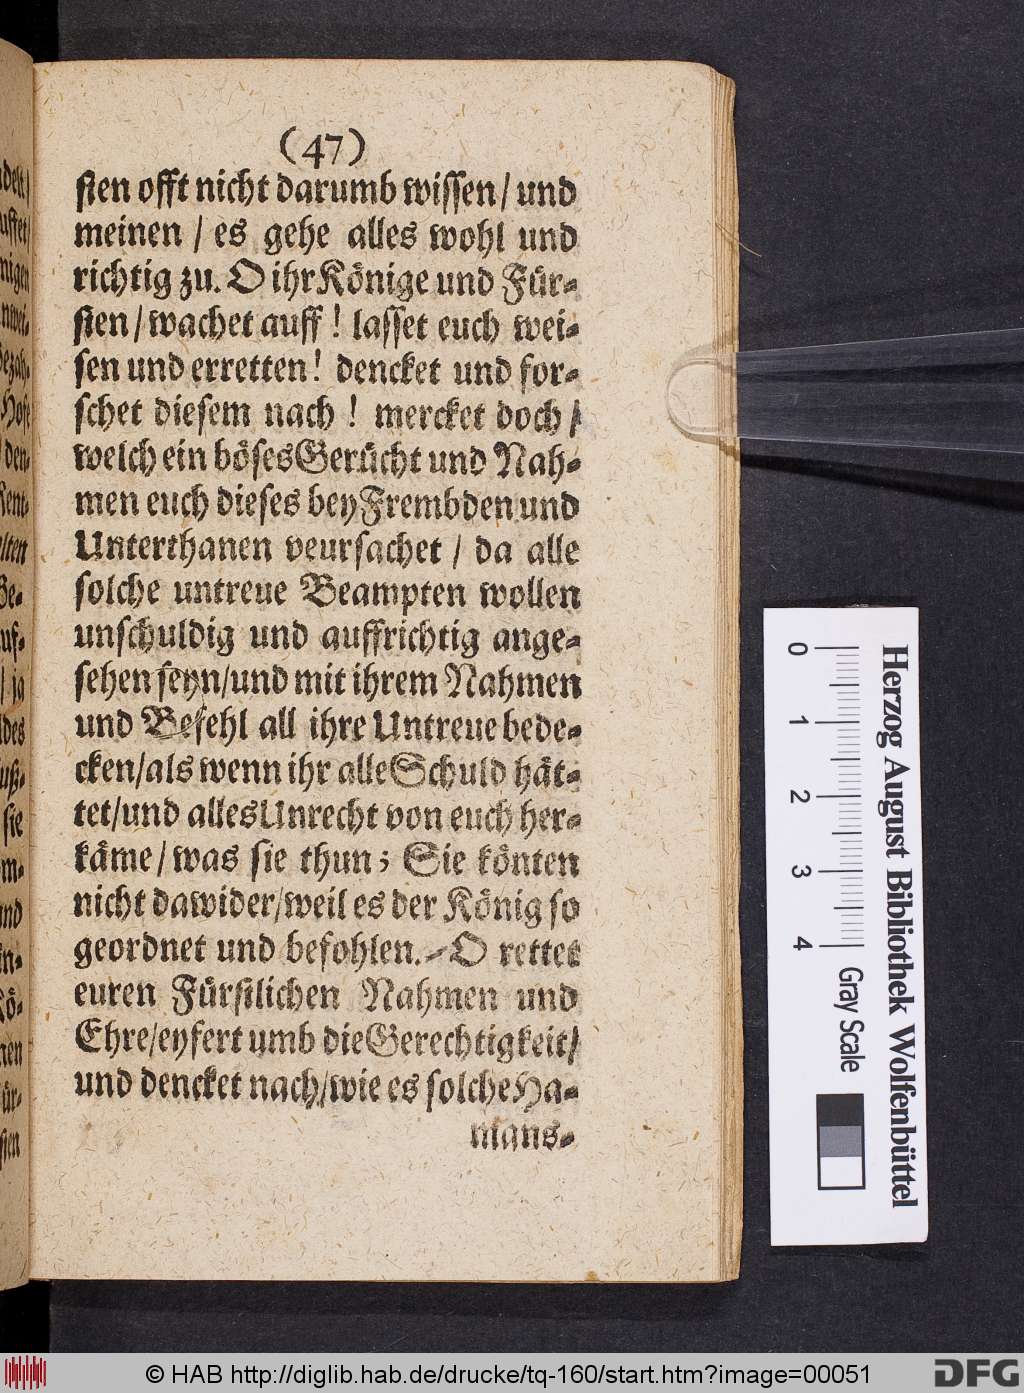 (47)
sten offt nicht darumb wissen/ und
meinen / es gehe alles wohl und
richtig zu. O ihr Könige und Für-
sten / wachet auff ! lasset euch wei-
sen und erretten! dencket und for-
schet diesem nach ! mercket doch /
welch ein böses Gerücht und Nah-
men euch dieses bey Frembden und
Unterthanen veursachet / da alle
solche untreue Beampten wollen
unschuldig und auffrichtig ange-
sehen seyn/und mit ihrem Nahmen
und Befehl all ihre Untreue bede-
cken/als wenn ihr alle Schuld hät-
tet/und alles Unrecht von euch her-
käme / was sie thun; Sie könten
nicht dawider/weil es der König so
geordnet und befohlen. O rettet
euren Fürstlichen Nahmen und
Ehre/eyfert umb die Gerechtigkeit/
und dencket nach/wie es solche Ha-
mans-
0 1 2 3 4
Gray Scale
Herzog August Bibliothek Wolfenbüttel
© HAB http://diglib.hab.de/drucke/tq-160/start.htm?image=00051
DFG